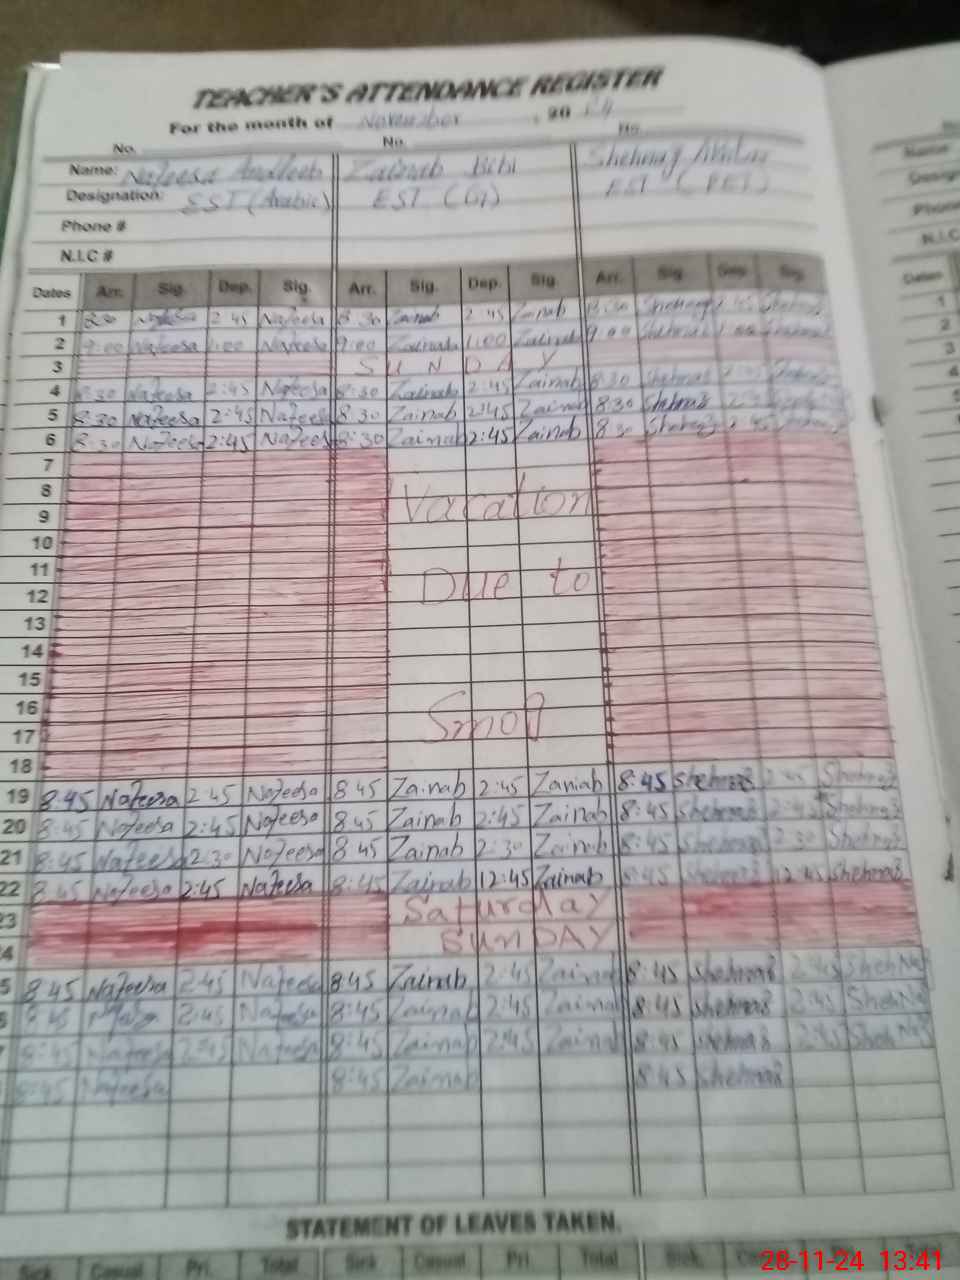 TEACHER'S ATTENDANCE REGISTER
For the month of November , 20 24
No. No. No.
Name: Nafeesa Andleeb Zainab Bibi Shehnaz
Designation: SST (Arabic) EST (G) EST (PET)
Phone #
N.I.C #
Dates Arr. Sig. Dep. Sig. Arr. Sig. Dep. Sig. Arr. Sig. Dep. Sig.
1 8:30 Nafeesa 2:45 Nafeesa 8:30 Zainab 2:45 Zainab 8:30 Shehnaz 2:45 Shehnaz
2 9:00 Nafeesa 1:00 Nafeesa 9:00 Zainab 1:00 Zainab 9:00 Shehnaz 1:00 Shehnaz
3 SUNDAY
4 8:30 Nafeesa 2:45 Nafeesa 8:30 Zainab 2:45 Zainab 8:30 Shehnaz 2:45 Shehnaz
5 8:30 Nafeesa 2:45 Nafeesa 8:30 Zainab 2:45 Zainab 8:30 Shehnaz
6 8:30 Nafeesa 2:45 Nafeesa 8:30 Zainab 2:45 Zainab 8:30 Shehnaz 2:45 Shehnaz
7
8 Vacation
9
10
11 Due to
12
13
14
15
16 Smog
17
18
19 8:45 Nafeesa 2:45 Nafeesa 8 45 Zainab 2:45 Zaniab 8:45 Shehnaz 2:45 Shehnaz
20 8:45 Nafeesa 2:45 Nafeesa 8 45 Zainab 2:45 Zainab 8:45 Shehnaz 2:45 Shehnaz
21 8:45 Nafeesa 2:30 Nafeesa 8 45 Zainab 2:30 Zainab 8:45 Shehnaz 2:30 Shehnaz
22 8:45 Nafeesa 2:45 Nafeesa 8:45 Zainab 12:45 Zainab 8:45 Shehnaz 12:45 Shehnaz
23 Saturday
4 SUNDAY
5 8 45 Nafeesa 2:45 Nafeesa 8:45 Zainab 2:45 Zainab 8:45 Shehnaz 2:45 ShehNaz
8:45 Nafeesa 2:45 Nafeesa 8:45 Zainab 2:45 Zainab 8:45 Shehnaz 2:45 ShehNaz
8:45 Nafeesa 2:45 Nafeesa 8:45 Zainab 2:45 Zainab 8:45 Shehnaz 2:45 ShehNaz
8:45 Nafeesa 8:45 Zainab 8:45 Shehnaz
STATEMENT OF LEAVES TAKEN.
Sick Casual Pri. Total Sick Casual Pri. Total Sick Total
28-11-24 13:41